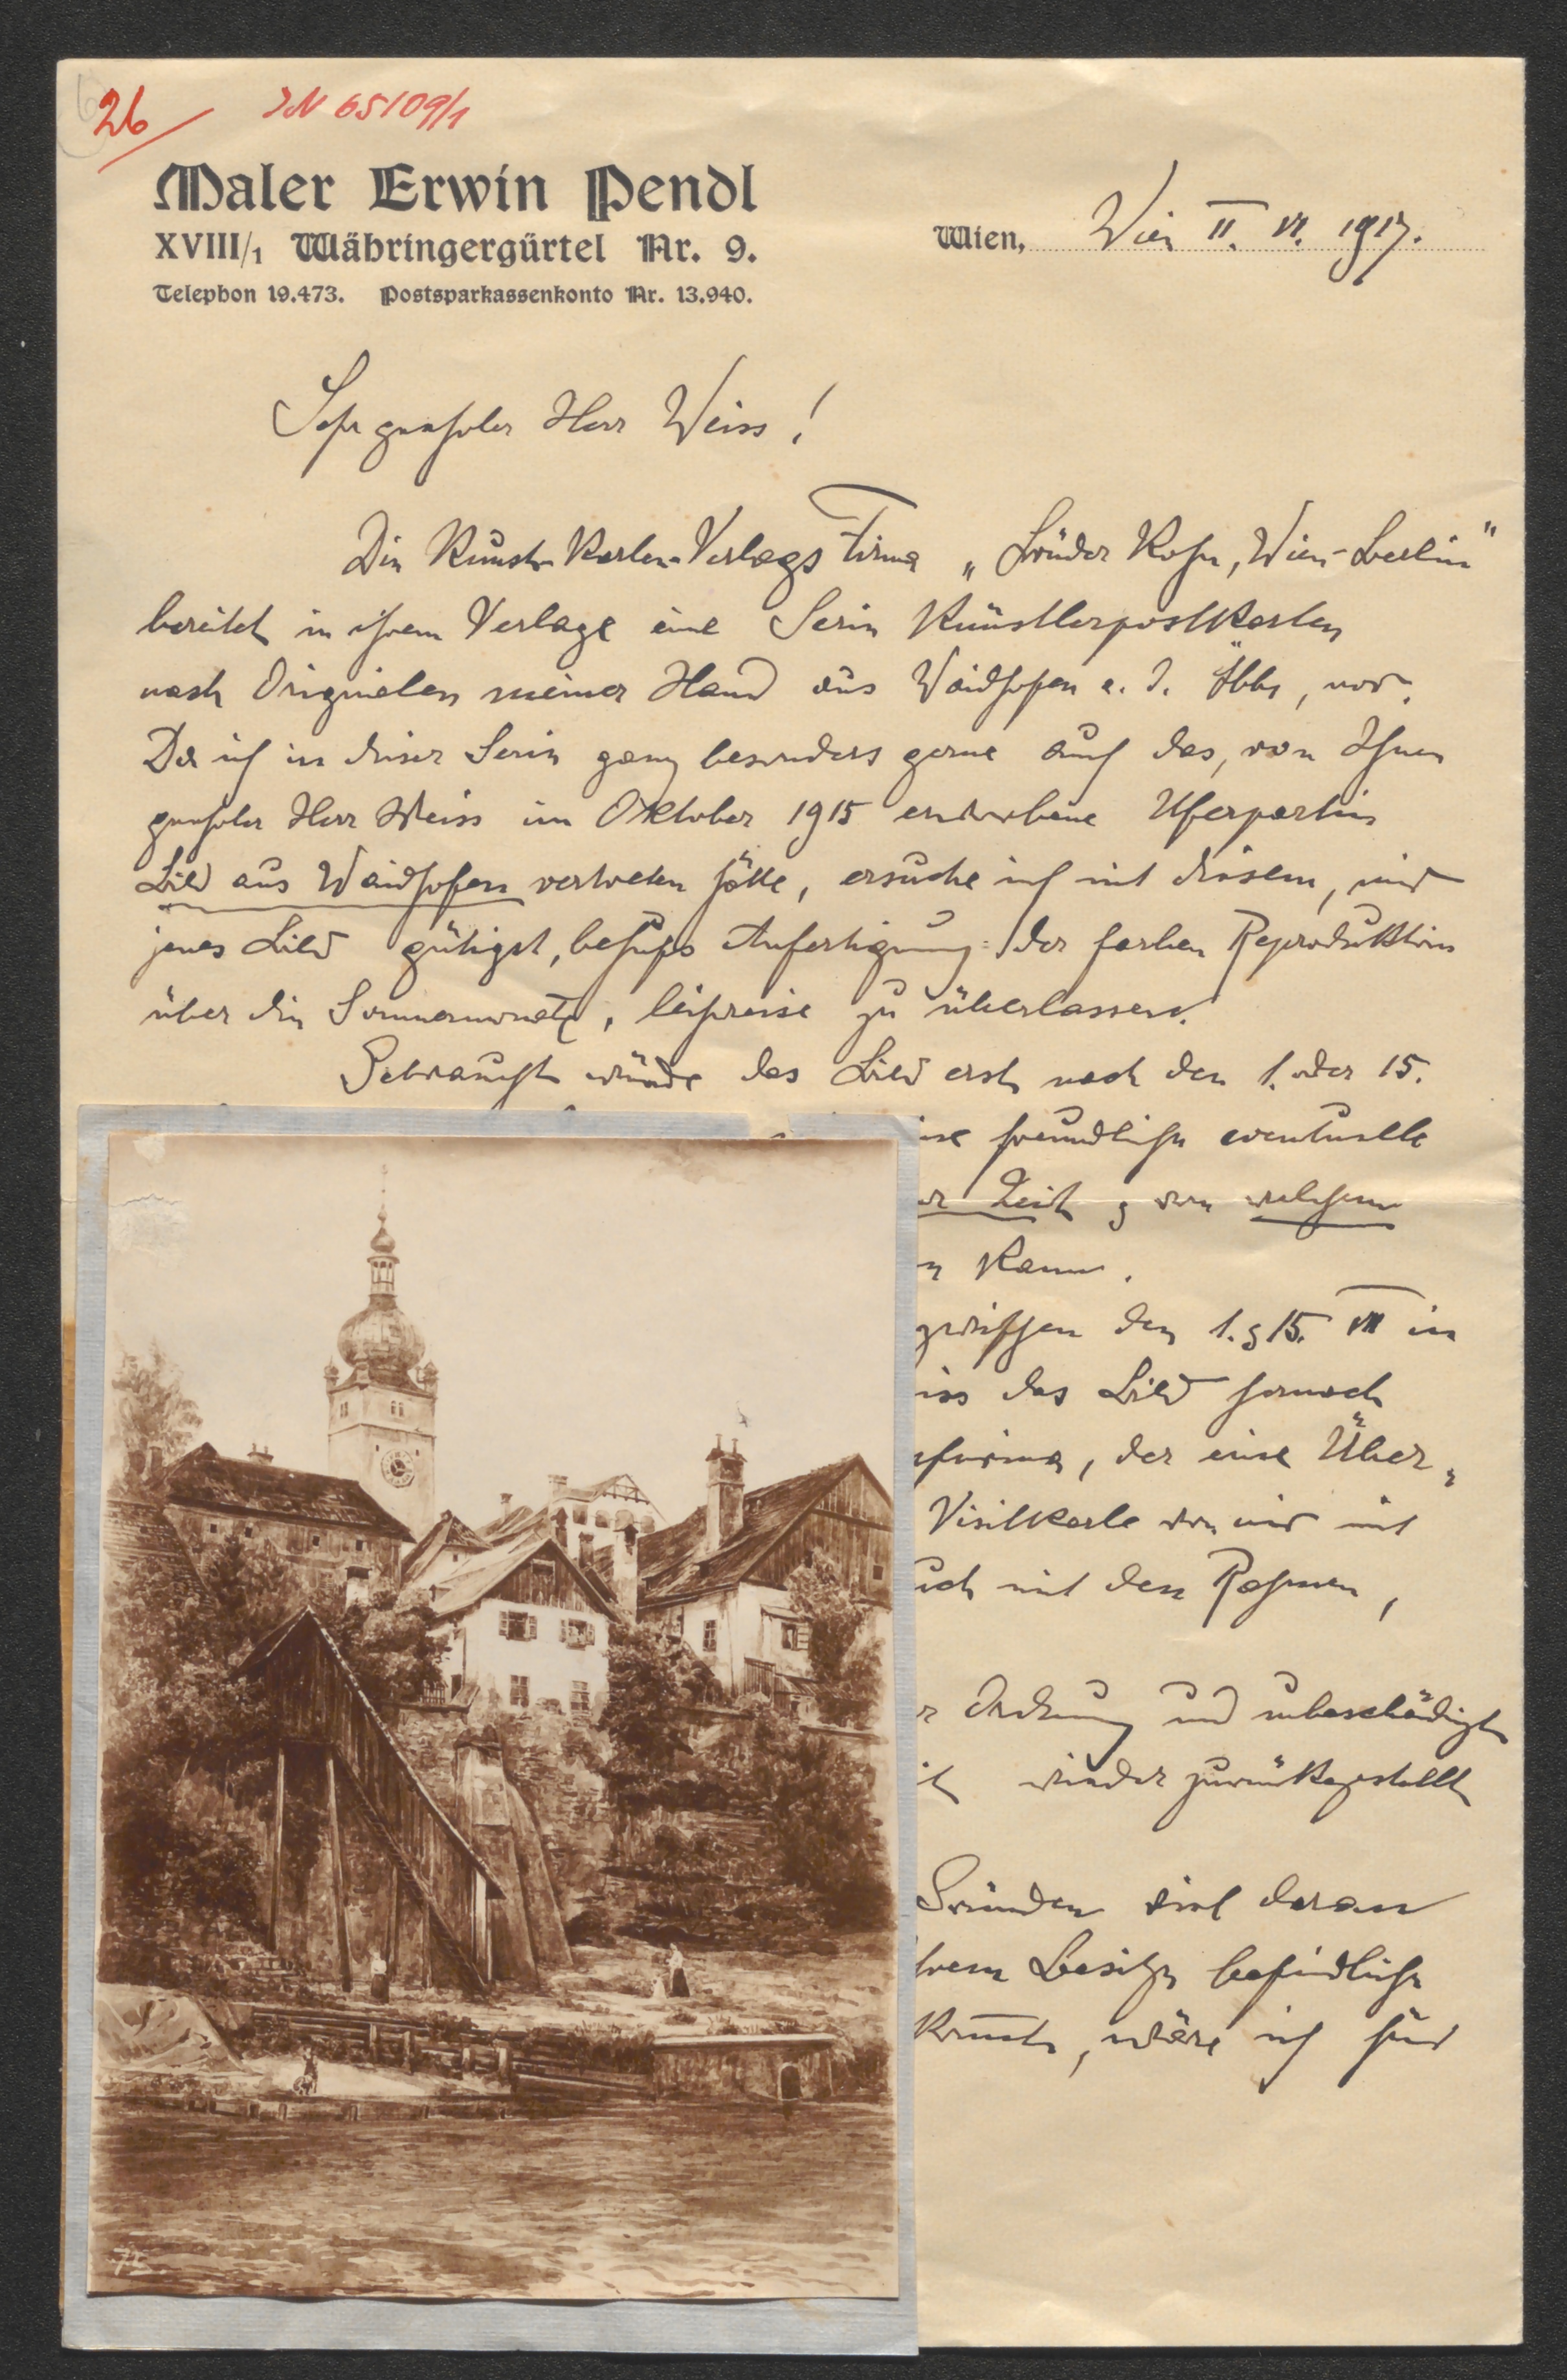 26 IN 65109/1
Maler Erwin Pendl
XVIII/1 Währingergürtel Nr. 9.
Telephon 19.473. Postsparkassenkonto Nr. 13.940.
Wien, Wien II. VI. 1917.
Sehr geehrter Herr Weiss!
Die Kunst-Karten-Verlags Firma „Brüder Kohn, Wien-Berlin"
bereitet in ihrem Verlage eine Serie Künstlerpostkarten
nach Originalen meiner Hand aus Waidhofen a. d. Ybbs, vor.
Da ich in dieser Serie ganz besonders gerne auch das, von Ihnen
geehrter Herr Weiss im Oktober 1915 erworbene Uferpartie
Bild aus Waidhofen vertreten hätte, ersuche ich mit diesem, mir
jenes Bild gütigst, behufs Anfertigung der farben Reproduktion
über die Sommermonate, leihweise zu überlassen.
Gebraucht würde das Bild erst nach den 1. oder 15.
freundliche eventuelle
Zeit & von welchem
kann.
zwischen den 1. & 15. VII in
das Bild hernach
der eine Über„
Visitkarte von mir mit
mit den Rahmen,
Ordnung und unbeschädigt
wieder zurückgestellt
Gründen viel daran
Besitze befindliche
wäre ich für